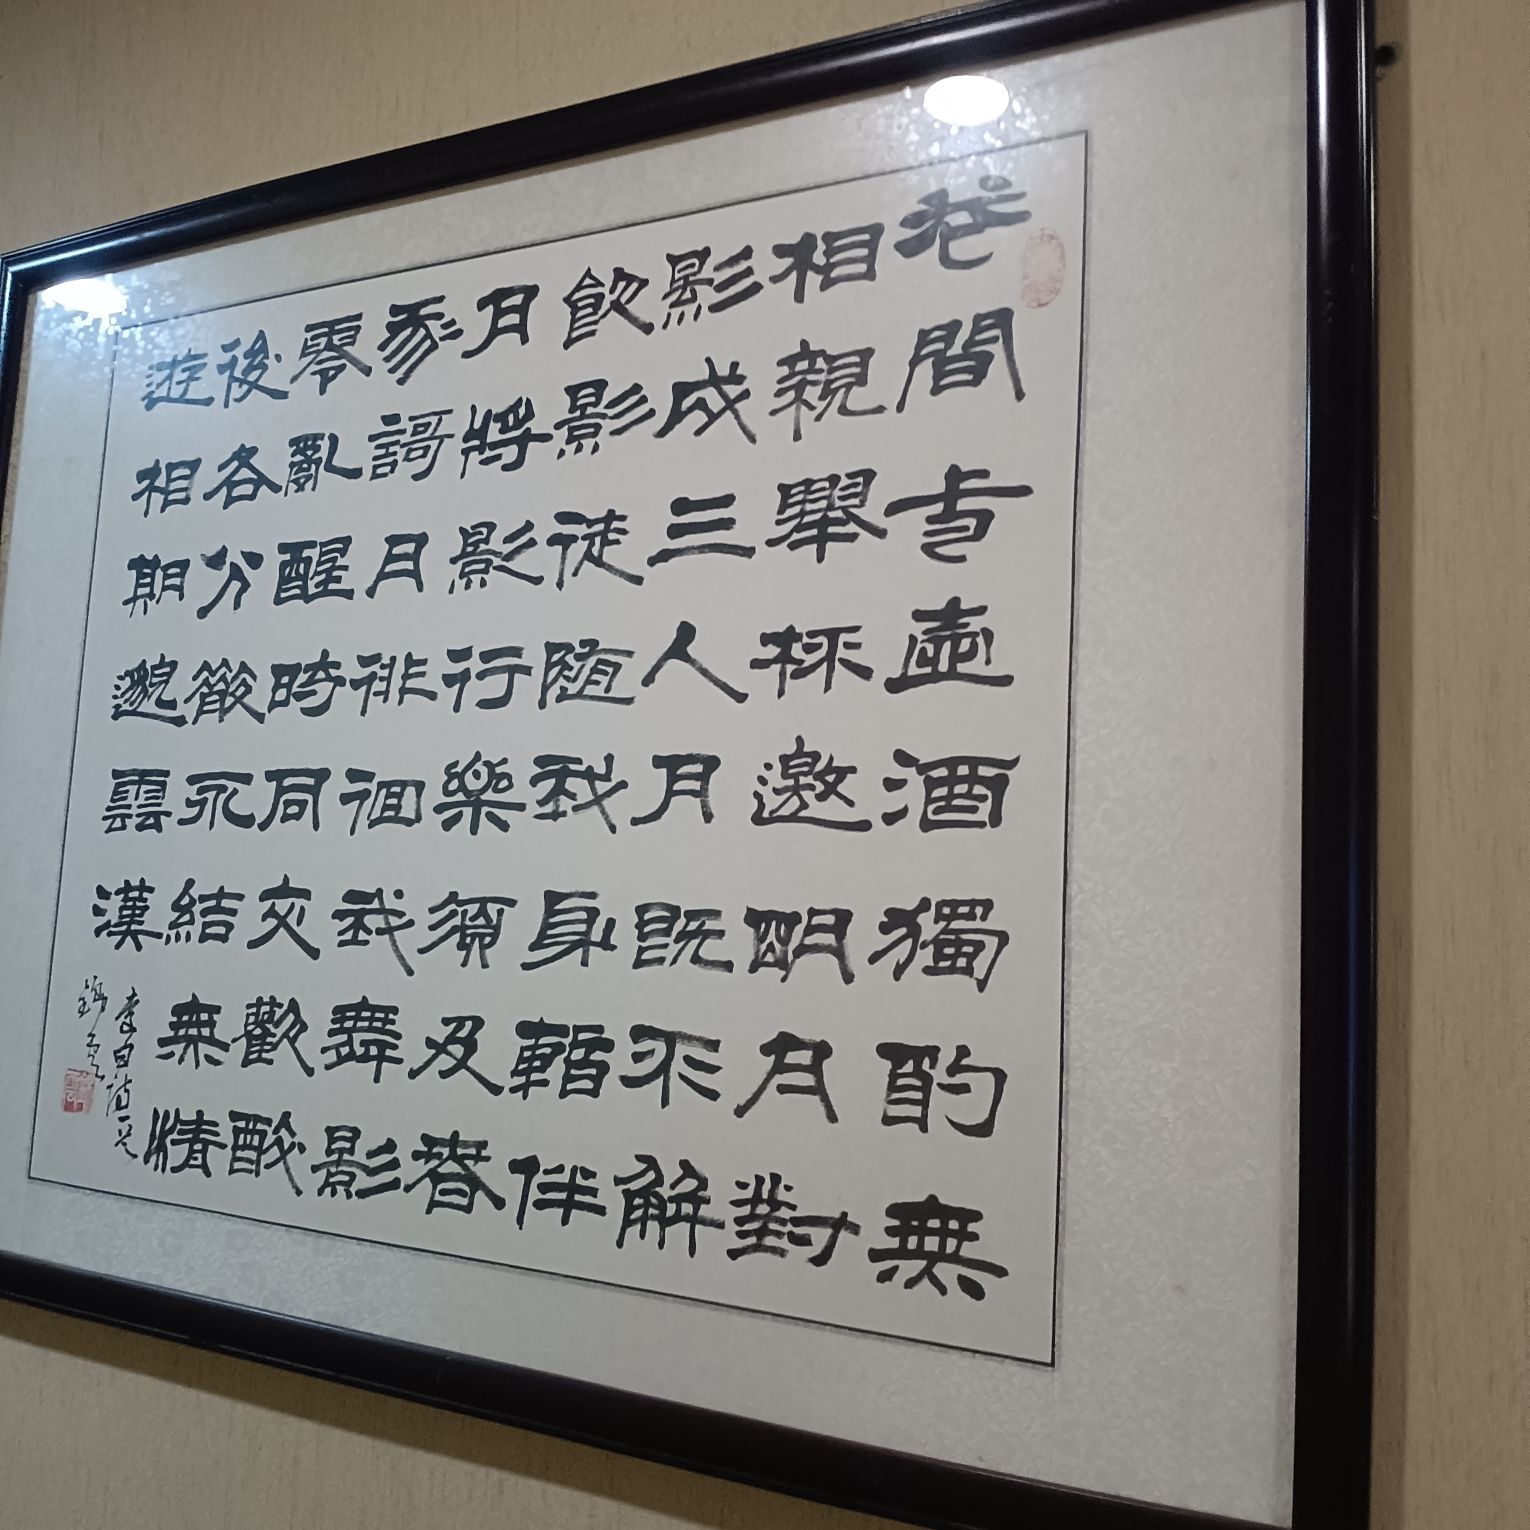 花間壹壺酒獨酌無
相親舉杯邀明月對
影成三人月既不解
飲影徒隨我身暫伴
月將影行樂須及春
我謌月徘徊我舞影
零亂醒時同交歡醉
後各分散永結無情
遊相期邈雲漢
李白詩一首